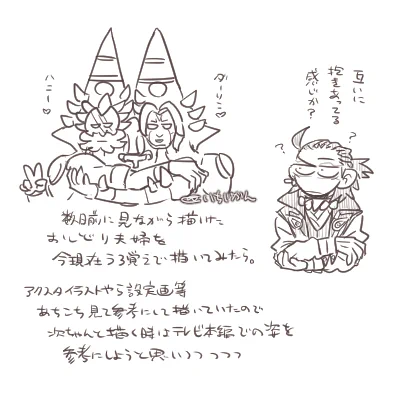 ハニー♡
ダーリン♡
互いに
抱きあってる
感じか?
?
?
数日前に見ながら描けた
おしどり夫婦を
今現在うろ覚えで描いてみたら。
アクスタイラストやら設定画等
あちこち見て参考にして描いていたので
次ちゃんと描く時はテレビ本編での姿を
参考にしようと思いつつつつつ